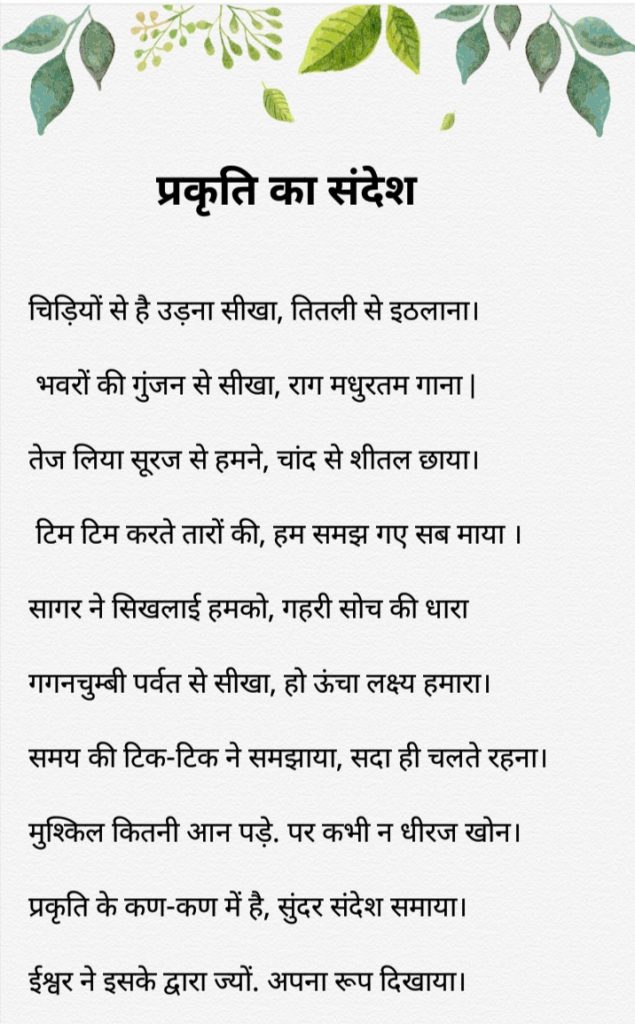 प्रकृति का संदेश
चिड़ियों से है उड़ना सीखा, तितली से इठलाना।
भवरों की गुंजन से सीखा, राग मधुरतम गाना |
तेज लिया सूरज से हमने, चांद से शीतल छाया।
टिम टिम करते तारों की, हम समझ गए सब माया ।
सागर ने सिखलाई हमको, गहरी सोच की धारा
गगनचुम्बी पर्वत से सीखा, हो ऊंचा लक्ष्य हमारा।
समय की टिक-टिक ने समझाया, सदा ही चलते रहना।
मुश्किल कितनी आन पड़े. पर कभी न धीरज खोन।
प्रकृति के कण-कण में है, सुंदर संदेश समाया।
ईश्वर ने इसके द्वारा ज्यों. अपना रूप दिखाया।